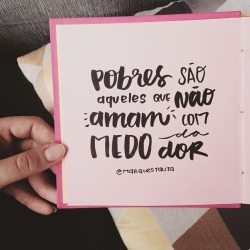 POBRES SÃO
aqueles que NÃO
amam COM
MEDO da DOR
@MARQUESTALITA